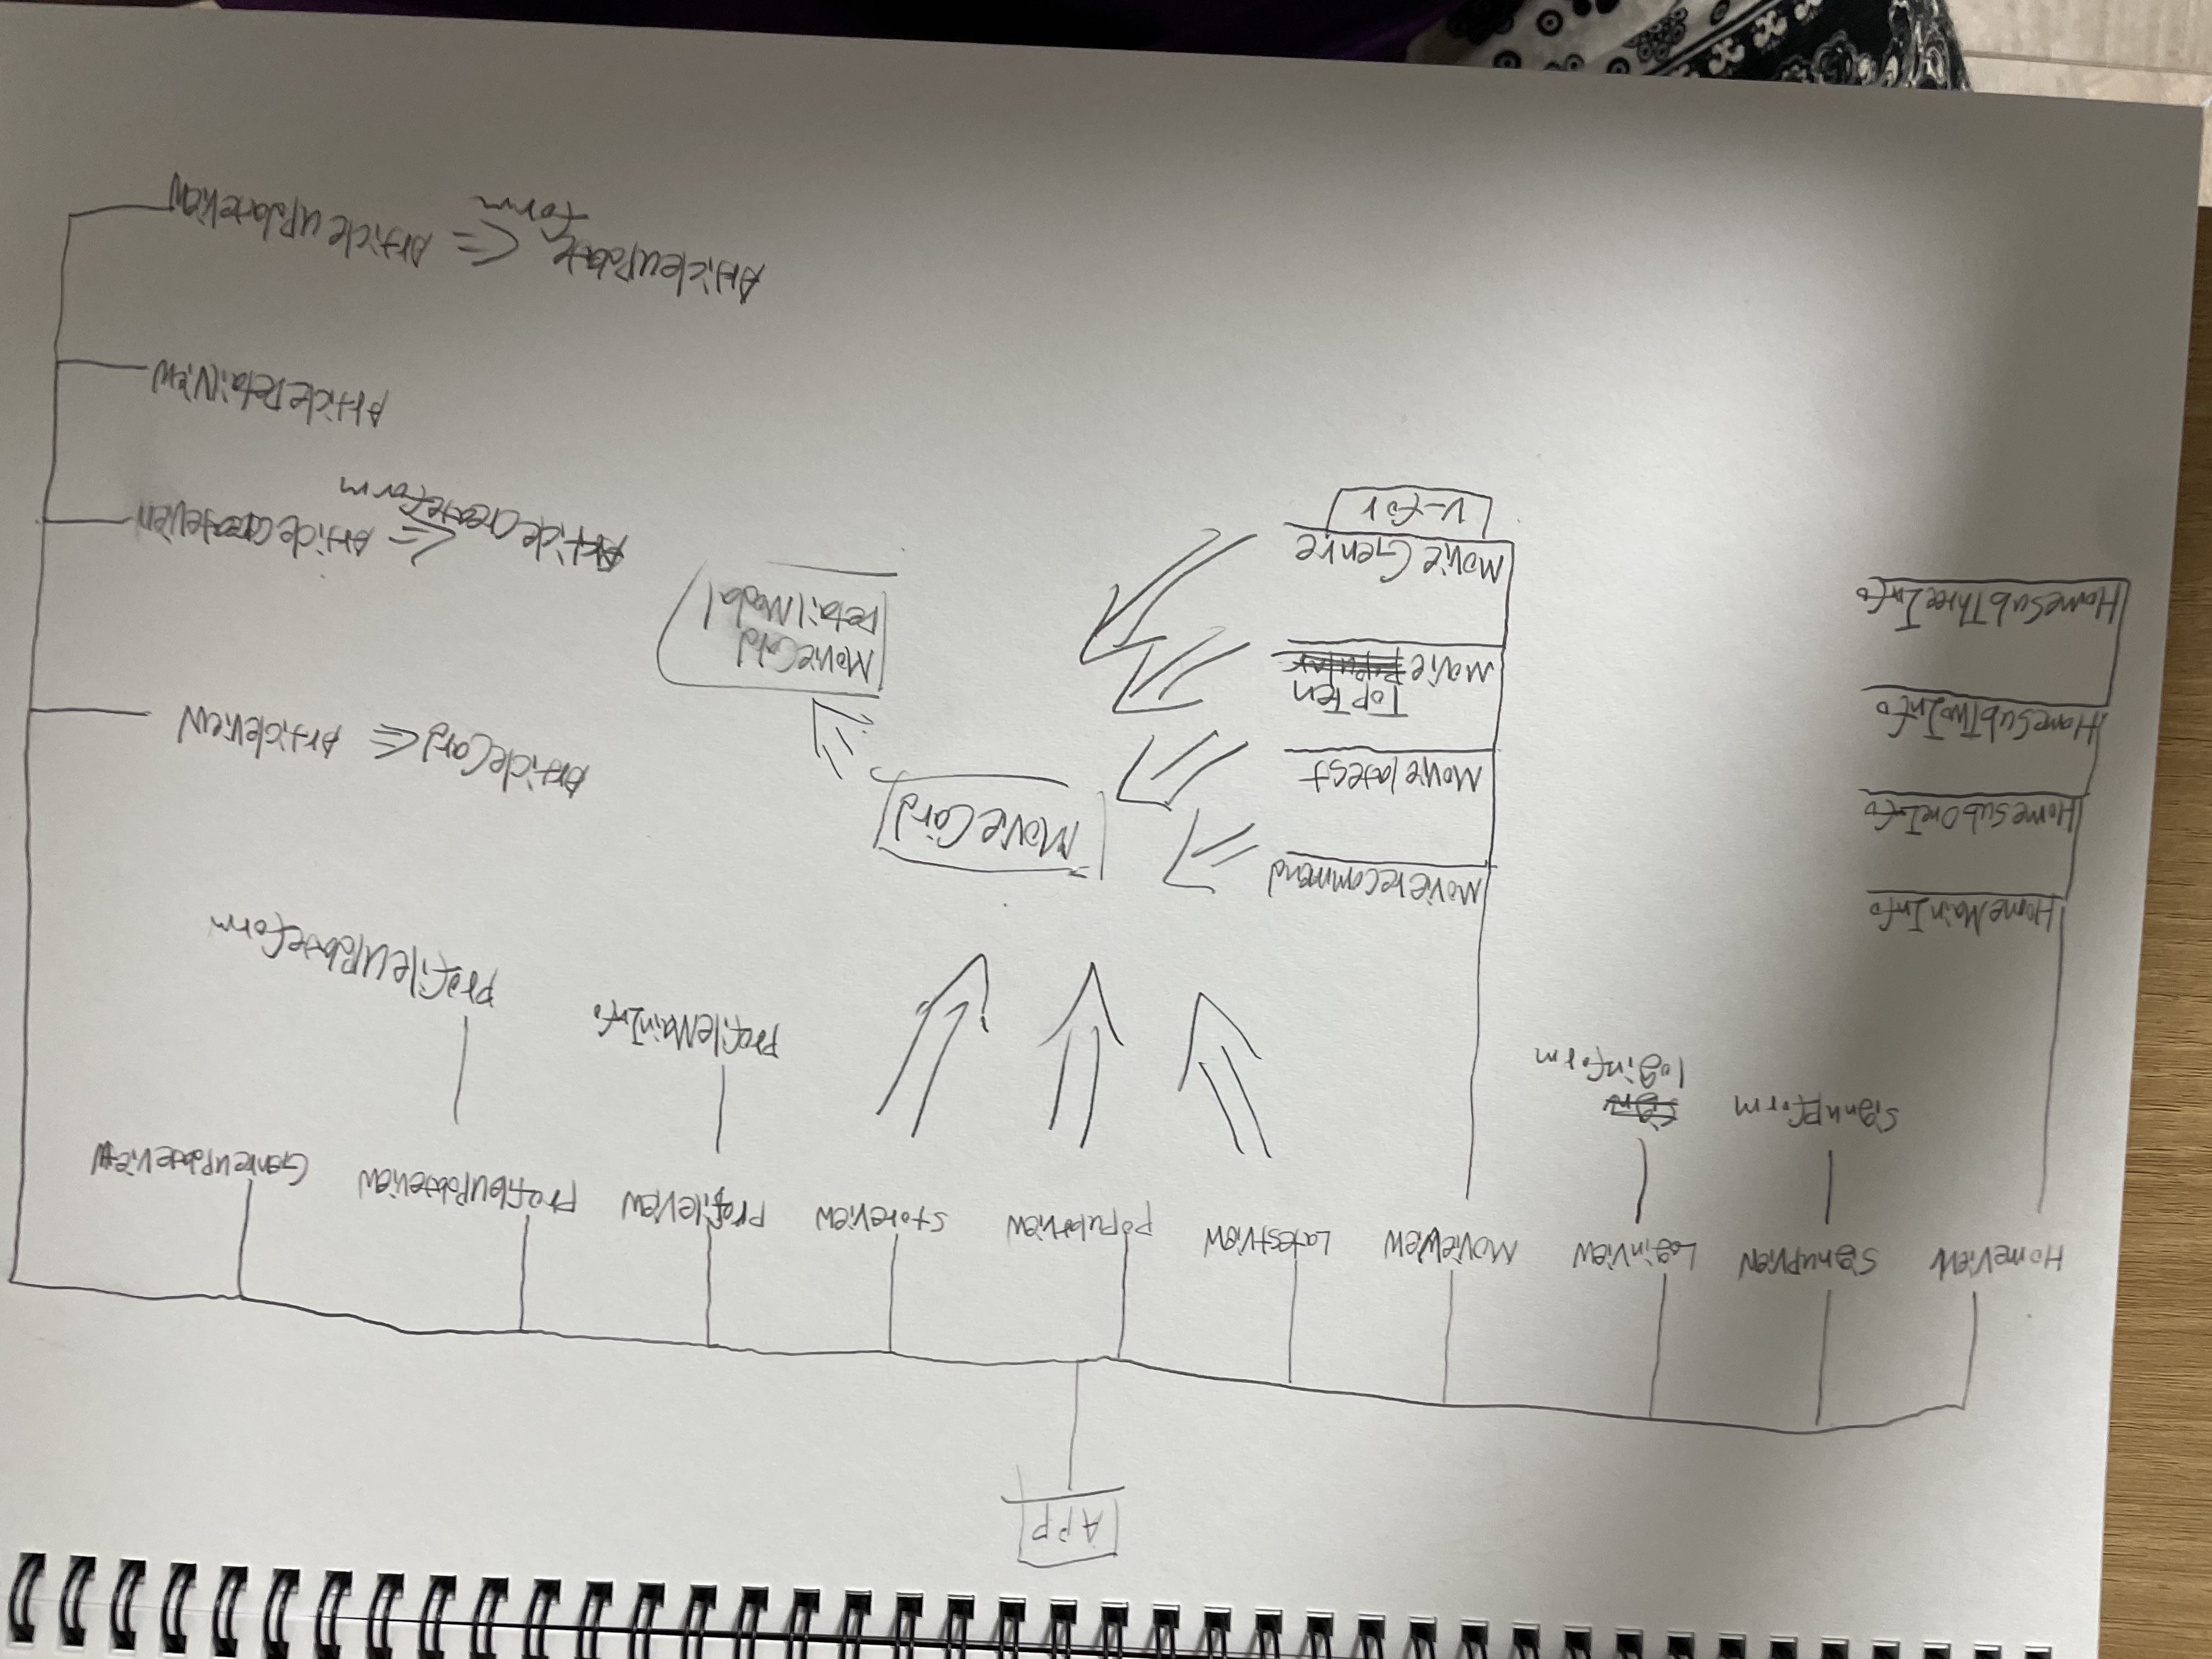 APP
HomeView
SignupView
LoginView
MovieView
LatestView
popularview
storeview
ProfileView
ProfileUpdateview
GenreUpdateView
signupform
sign
loginform
ProfileMainInfo
ProfileUpdateform
HomeMainInfo
HomesubOneInfo
HomeSubTwoInfo
HomeSubThreeInfo
Movierecommend
Movielatest
TopTen
Movie Popular
Movie Genre
v-for
Movie Card
MovieCard
DetailModal
ArticleCard ⇐ Articleview
ArticleCreateform ⇐ ArticleCreateview
ArticleDetailView
Articleupdate
form ⇐ ArticleupdateView